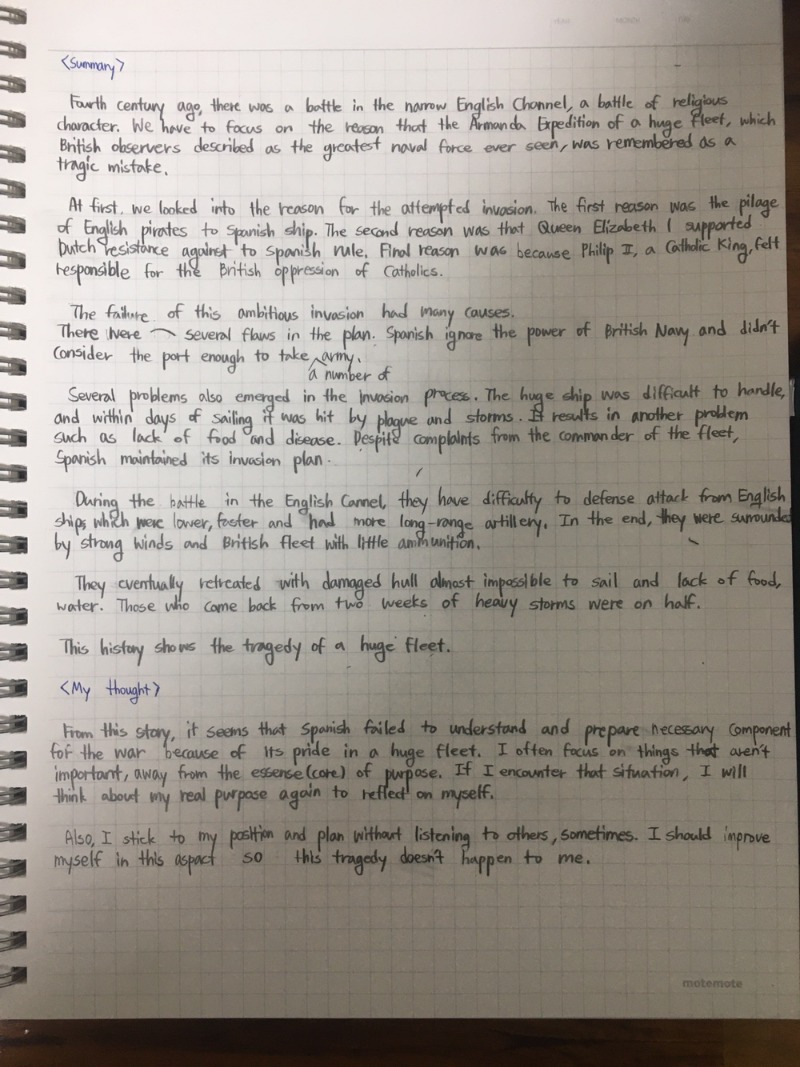 <Summary>
Fourth century ago, there was a battle in the narrow English Channel, a battle of religious
character. We have to focus on the reason that the Armanda Expedition of a huge fleet, which
British observers described as the greatest naval force ever seen, was remembered as a
tragic mistake.
At first, we looked into the reason for the attempted invasion. The first reason was the pilage
of English pirates to Spanish ship. The second reason was that Queen Elizabeth I supported
Dutch resistance against to Spanish rule. Final reason was because Philip II, a Catholic King, felt
responsible for the British oppression of Catholics.
The failure of this ambitious invasion had many causes.
There were several flaws in the plan. Spanish ignore the power of British Navy and didn't
consider the port enough to take army.
a number of
Several problems also emerged in the invasion process. The huge ship was difficult to handle,
and within days of sailing it was hit by plague and storms. It results in another problem
such as lack of food and disease. Despite complaints from the commander of the fleet,
Spanish maintained its invasion plan.
During the battle in the English Cannel, they have difficulty to defense attack from English
ships which were lower, faster and had more long-range artillery. In the end, they were surrounded
by strong winds and British fleet with little ammunition.
They eventually retreated with damaged hull almost impossible to sail and lack of food,
water. Those who come back from two weeks of heavy storms were on half.
This history shows the tragedy of a huge fleet.
<My thought>
From this story, it seems that Spanish failed to understand and prepare necessary component
for the war because of its pride in a huge fleet. I often focus on things that aren't
important, away from the essense(core) of purpose. If I encounter that situation, I will
think about my real purpose again to reflect on myself.
Also, I stick to my position and plan without listening to others, sometimes. I should improve
myself in this aspact so this tragedy doesn't happen to me.
motemote